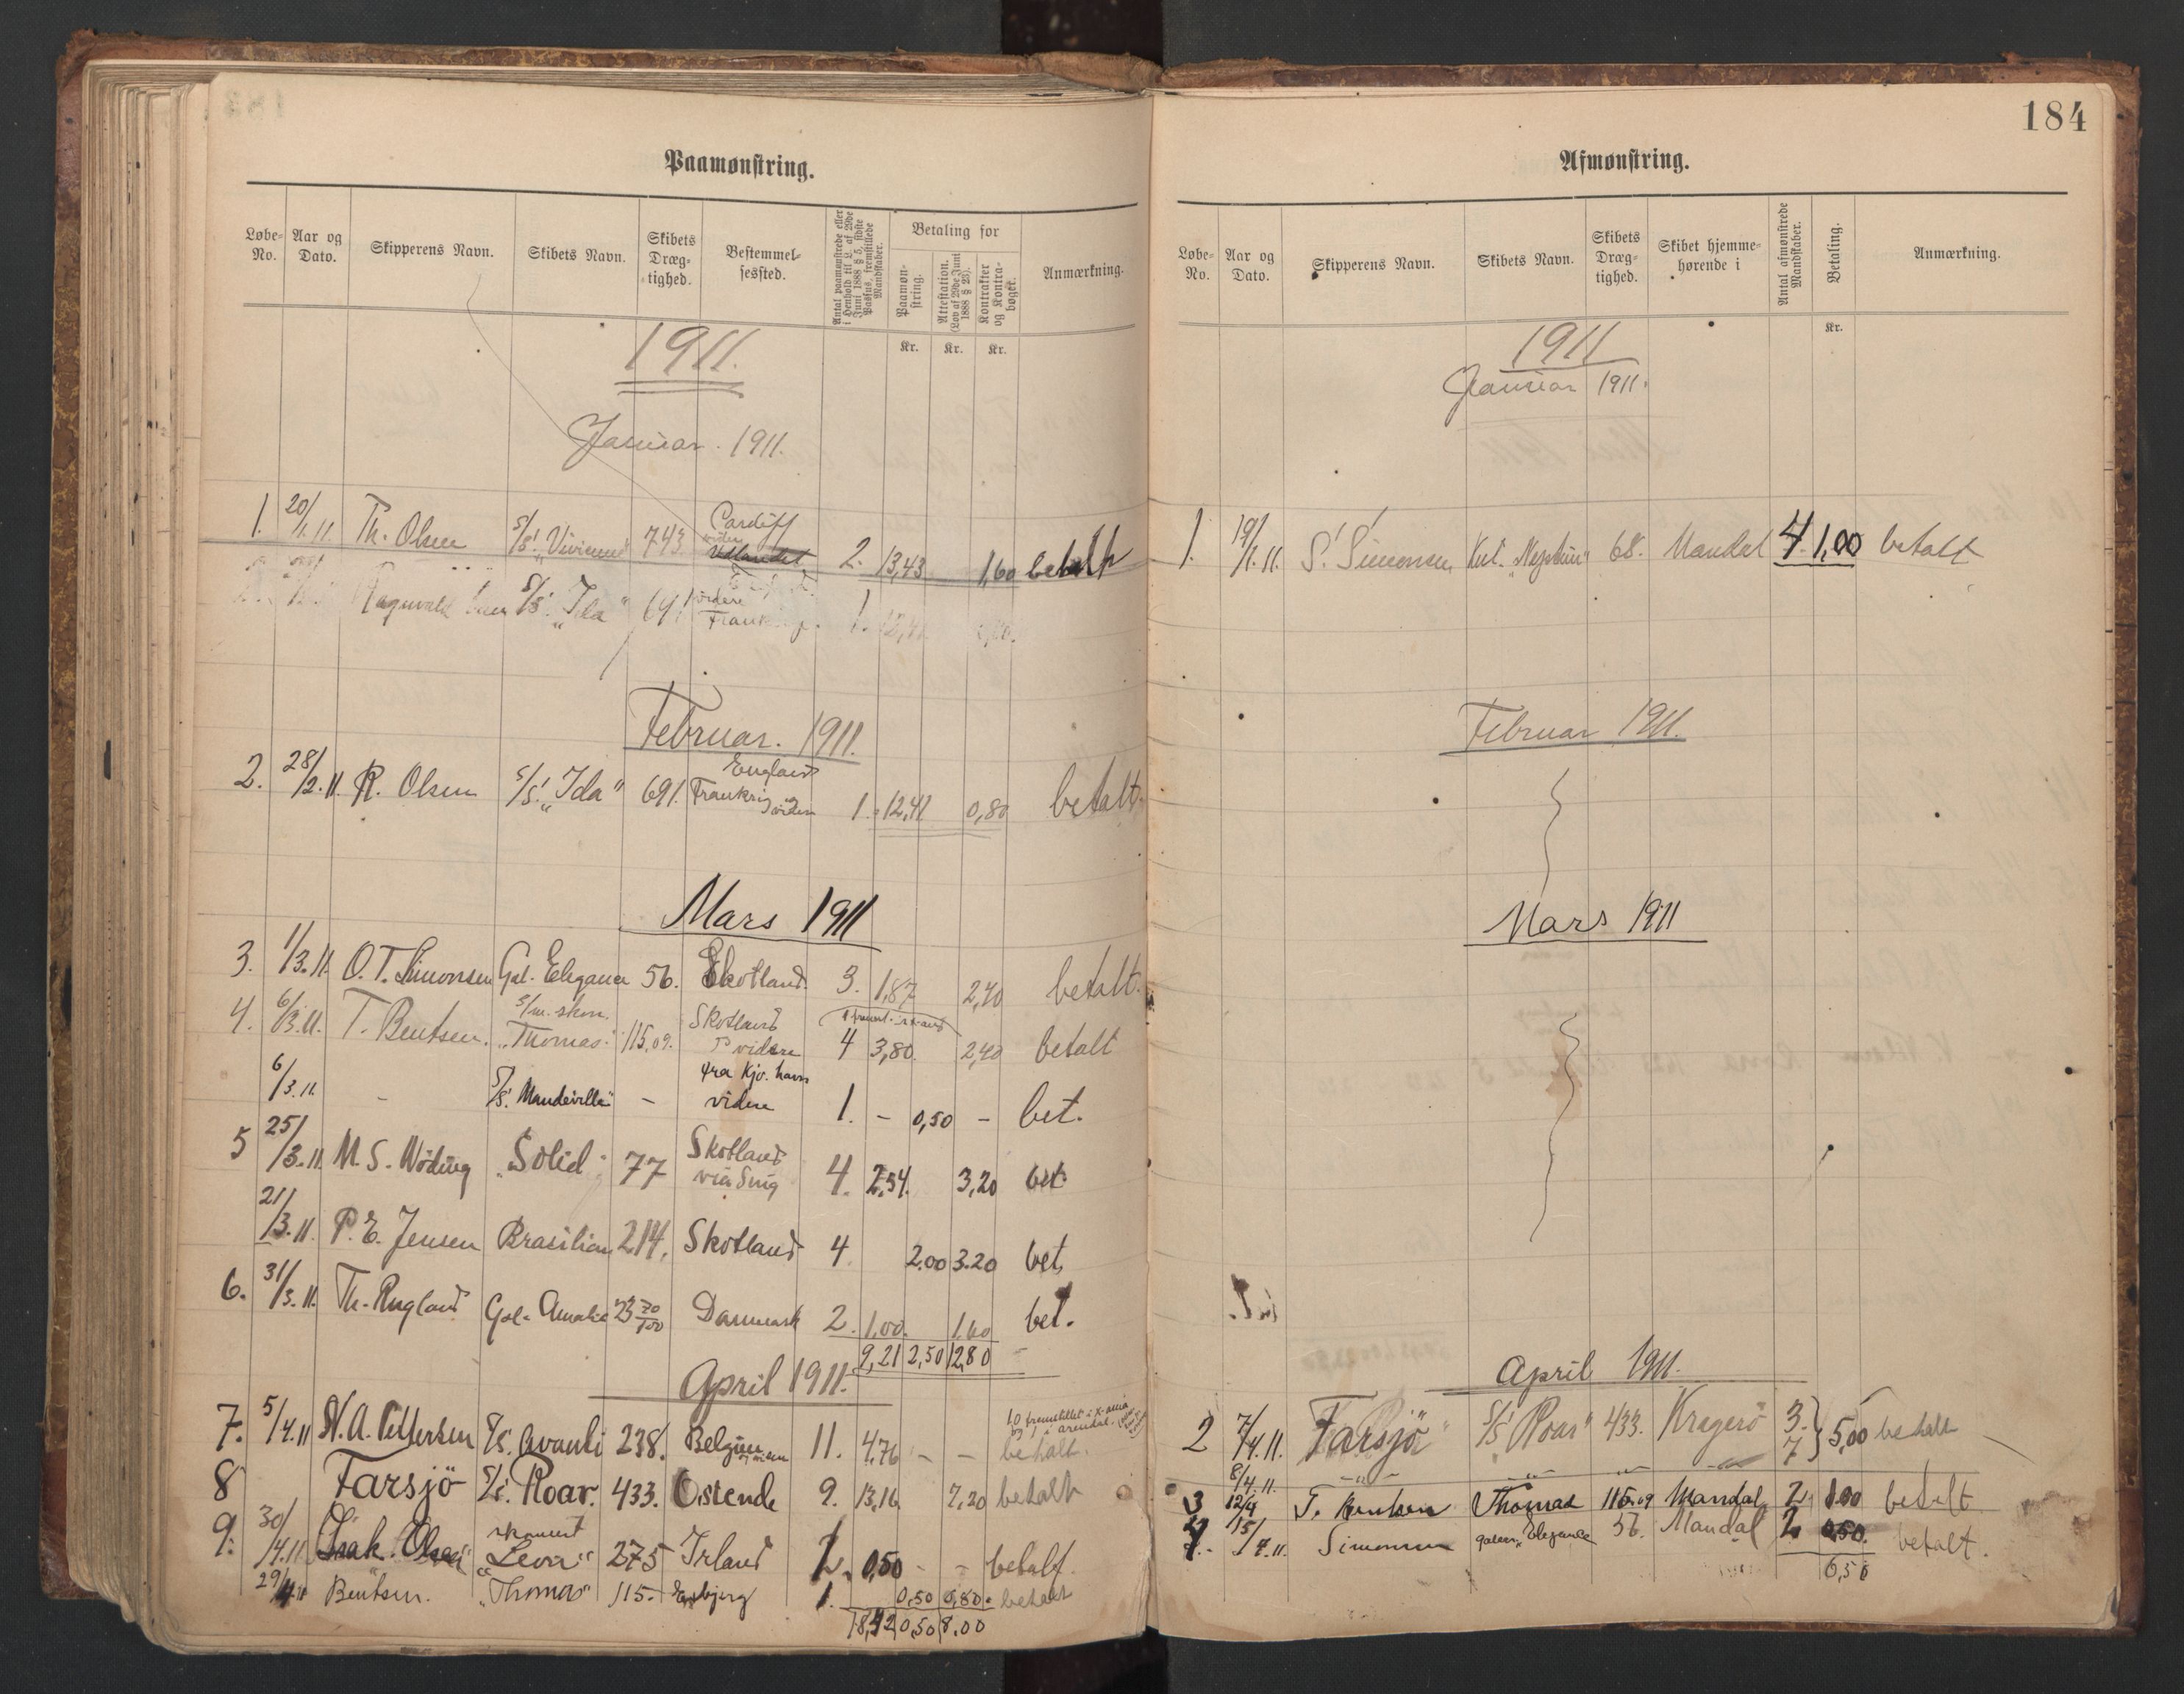 Paamønstring.
Løbe-No. Aar og Dato. Skipperens Navn. Skibets Navn. Skibets Dræg-tighed. Bestemmel-sessted. Antal paamønstrede eller i Henhold til L. af 29de Juni 1888 § 5, sidste Passus, fremstillede Mandskaber. Betaling for Paamøn-string. Attestation. (Lov af 29de Juni 1888 § 23). Kontrakter og Kontra-bøger. Anmærkning.
Kr. Kr. Kr.
1911.
Januar. 1911.
1. 20/1.11. Th. Olsen S/S. "Vivienne" 743. Cardiff
videre Udlandet 2. 13,43 1,60 betalt
Ragnvald S/S. "Ida" 691 videre
Frankrig. 1.
Februar. 1911.
2. 28/2.11. R. Olsen S/S. "Ida" 691. England
Frankrig videre 1. 12,41 0,80 betalt.
Mars 1911
3. 1/3.11. O. T. Simonsen Gal. Elegance 56. Skotland. 3. 1,87 2,40 betalt.
4. 6/3.11. T. Bentsen. S/m. skon. "Thomas" 115,09. Skotland
videre 4 3,80. 2,40 betalt
6/3.11. - S/S. "Mandeville" - fra Kjø. havn
videre 1. - 0,50 - bet.
5 25/3.11. M. S. Nöding "Solid" 77 Skotland
via 4. 2,54. 3,20 bet.
21/3.11. P. E. Jensen Brasilian 214. Skotland 4 2.00 3.20 bet.
6. 31/3.11. Th. Rugland Gal. Amalie 23 70/100 Danmark 2. 1,00. 1,60 bet.
9,21 2,50 12,80 -
April 1911.
7. 5/4.11 N. A. Pettersen S/S. Avanti 238. Belgien 11. 4,76 - - betalt.
8 Farsjö S/S. Roar. 433. Ostende 9. 13,16. 7,20 betalt
9. 30/4.11 Isak. Olsen skonnert "Levir" 275 Irland 1. 0,50 - - betalt.
29/4.11 Bentsen. "Thomas" 115. Esbjerg 1. 0,50 0,80. betalt
18,42 0,50 8.00
184
Afmønstring.
Løbe-No. Aar og Dato. Skipperens Navn. Skibets Navn. Skibets Dræg-tighed. Skibet hjemme-hørende i Antal afmønstrede Mandskaber. Betaling. Anmærkning.
Kr.
1911
Januar 1911.
1. 19/1.11. S. Simonsen Kut. "Neptun" 68. Mandal 4. 1,00 betalt
Februar 1911.
Mars 1911
April 1911.
2 7/4.11. Farsjö S/S "Roar" 433. Kragerö 3. } 5,00 betalt
8/4.11. -"- -"- -"- 7
3 12/4 T. Bentsen Thomas 115.09 Mandal 2 1.00 betalt
4. 15/4.11. Simonsen galeas "Elegance 56. Mandal 2 0,50. betalt.
6,50